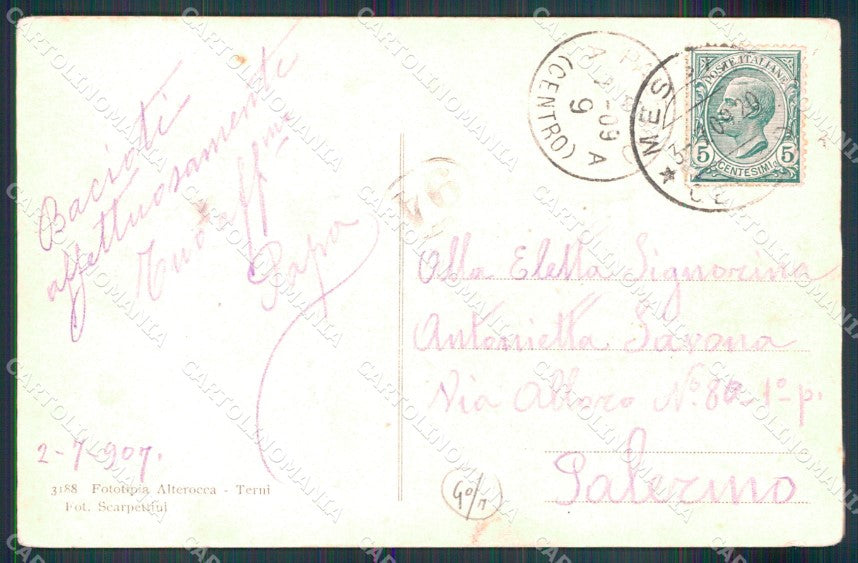 Bacioti
affettuosamente
Tuo aff.mo
Papa
2-7-907.
3188 Fototipia Alterocca - Terni
Fot. Scarpettini
POSTE ITALIANE
5 CENTESIMI 5
(CENTRO)
-09
9 A
MES
Alla Eletta Signorina
Antonietta Savona
Via Alloro N.º 1º p.
Palermo
CARTOLINOMANIA